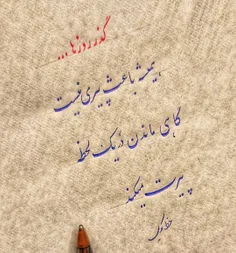 گذر روزها...
همیشه باعث پیری نیست
گاهی ماندن در یک لحظه
پیرت میکند